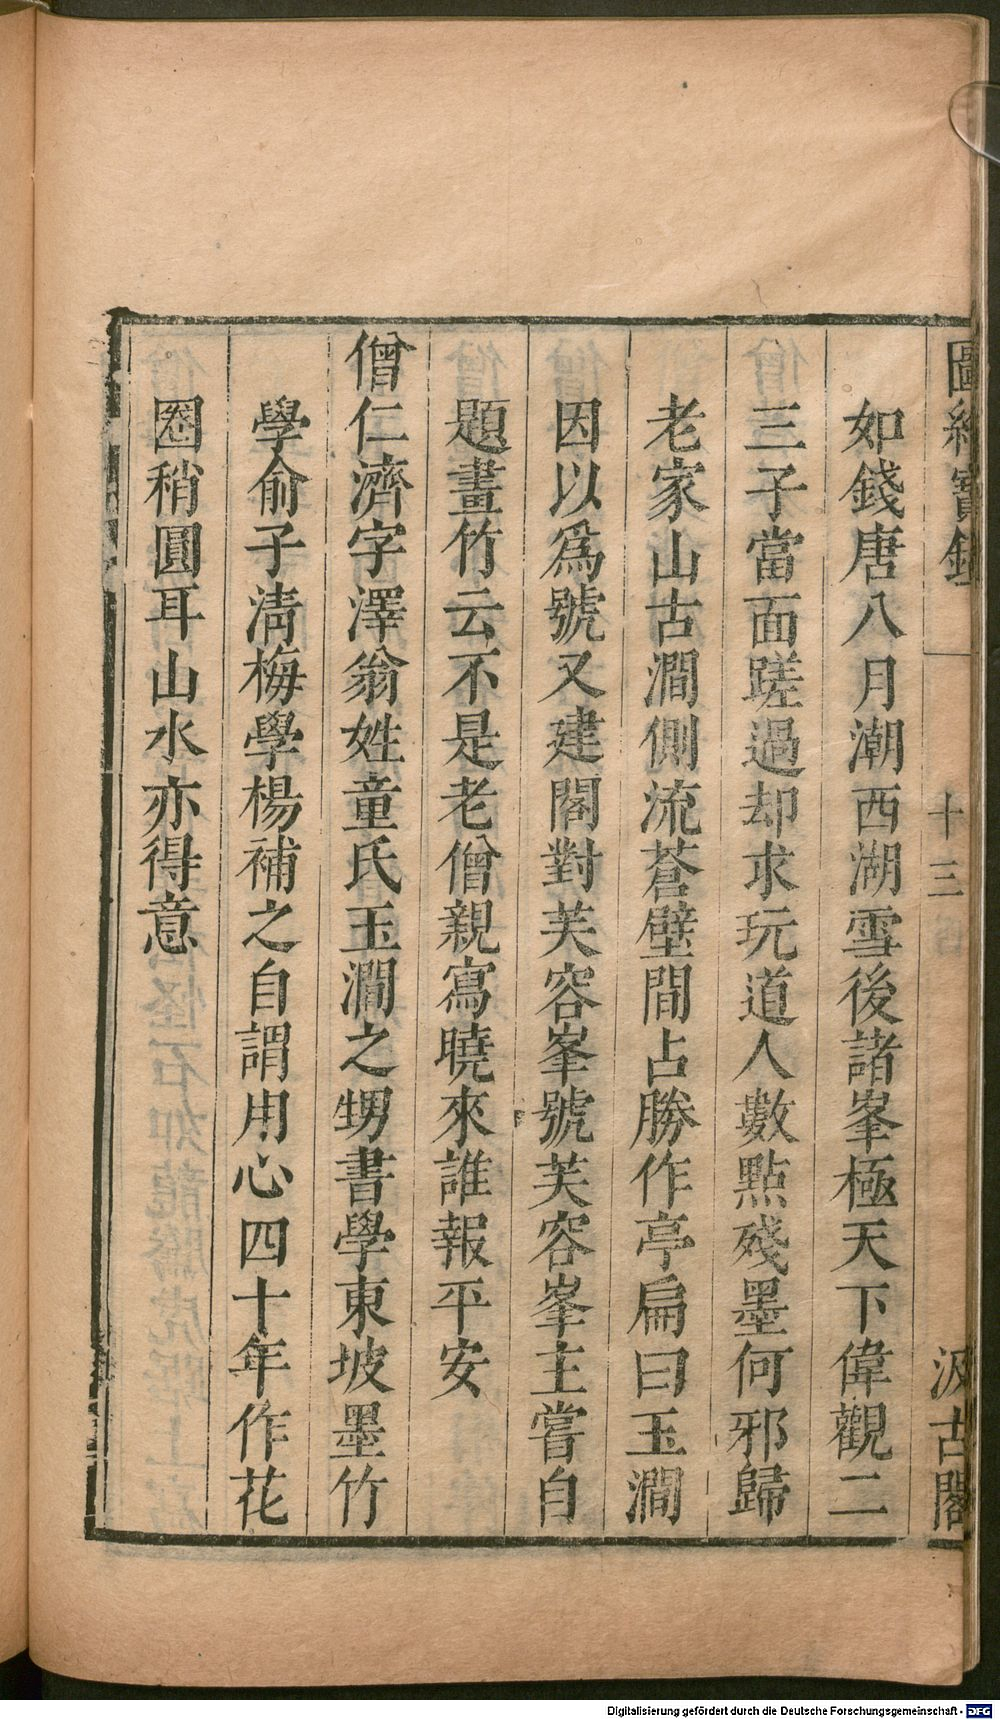 圖繪寶鑑
十三
汲古閣
如錢唐八月潮西湖雪後諸峯極天下偉觀二
三子當面蹉過却求玩道人數點殘墨何邪歸
老家山古澗側流蒼壁間占勝作亭扁曰玉澗
因以爲號又建閣對芙容峯號芙容峯主嘗自
題畫竹云不是老僧親寫曉來誰報平安
僧仁濟字澤翁姓童氏玉澗之甥書學東坡墨竹
學俞子清梅學楊補之自謂用心四十年作花
圈稍圓耳山水亦得意
Digitalisierung gefördert durch die Deutsche Forschungsgemeinschaft - DFG